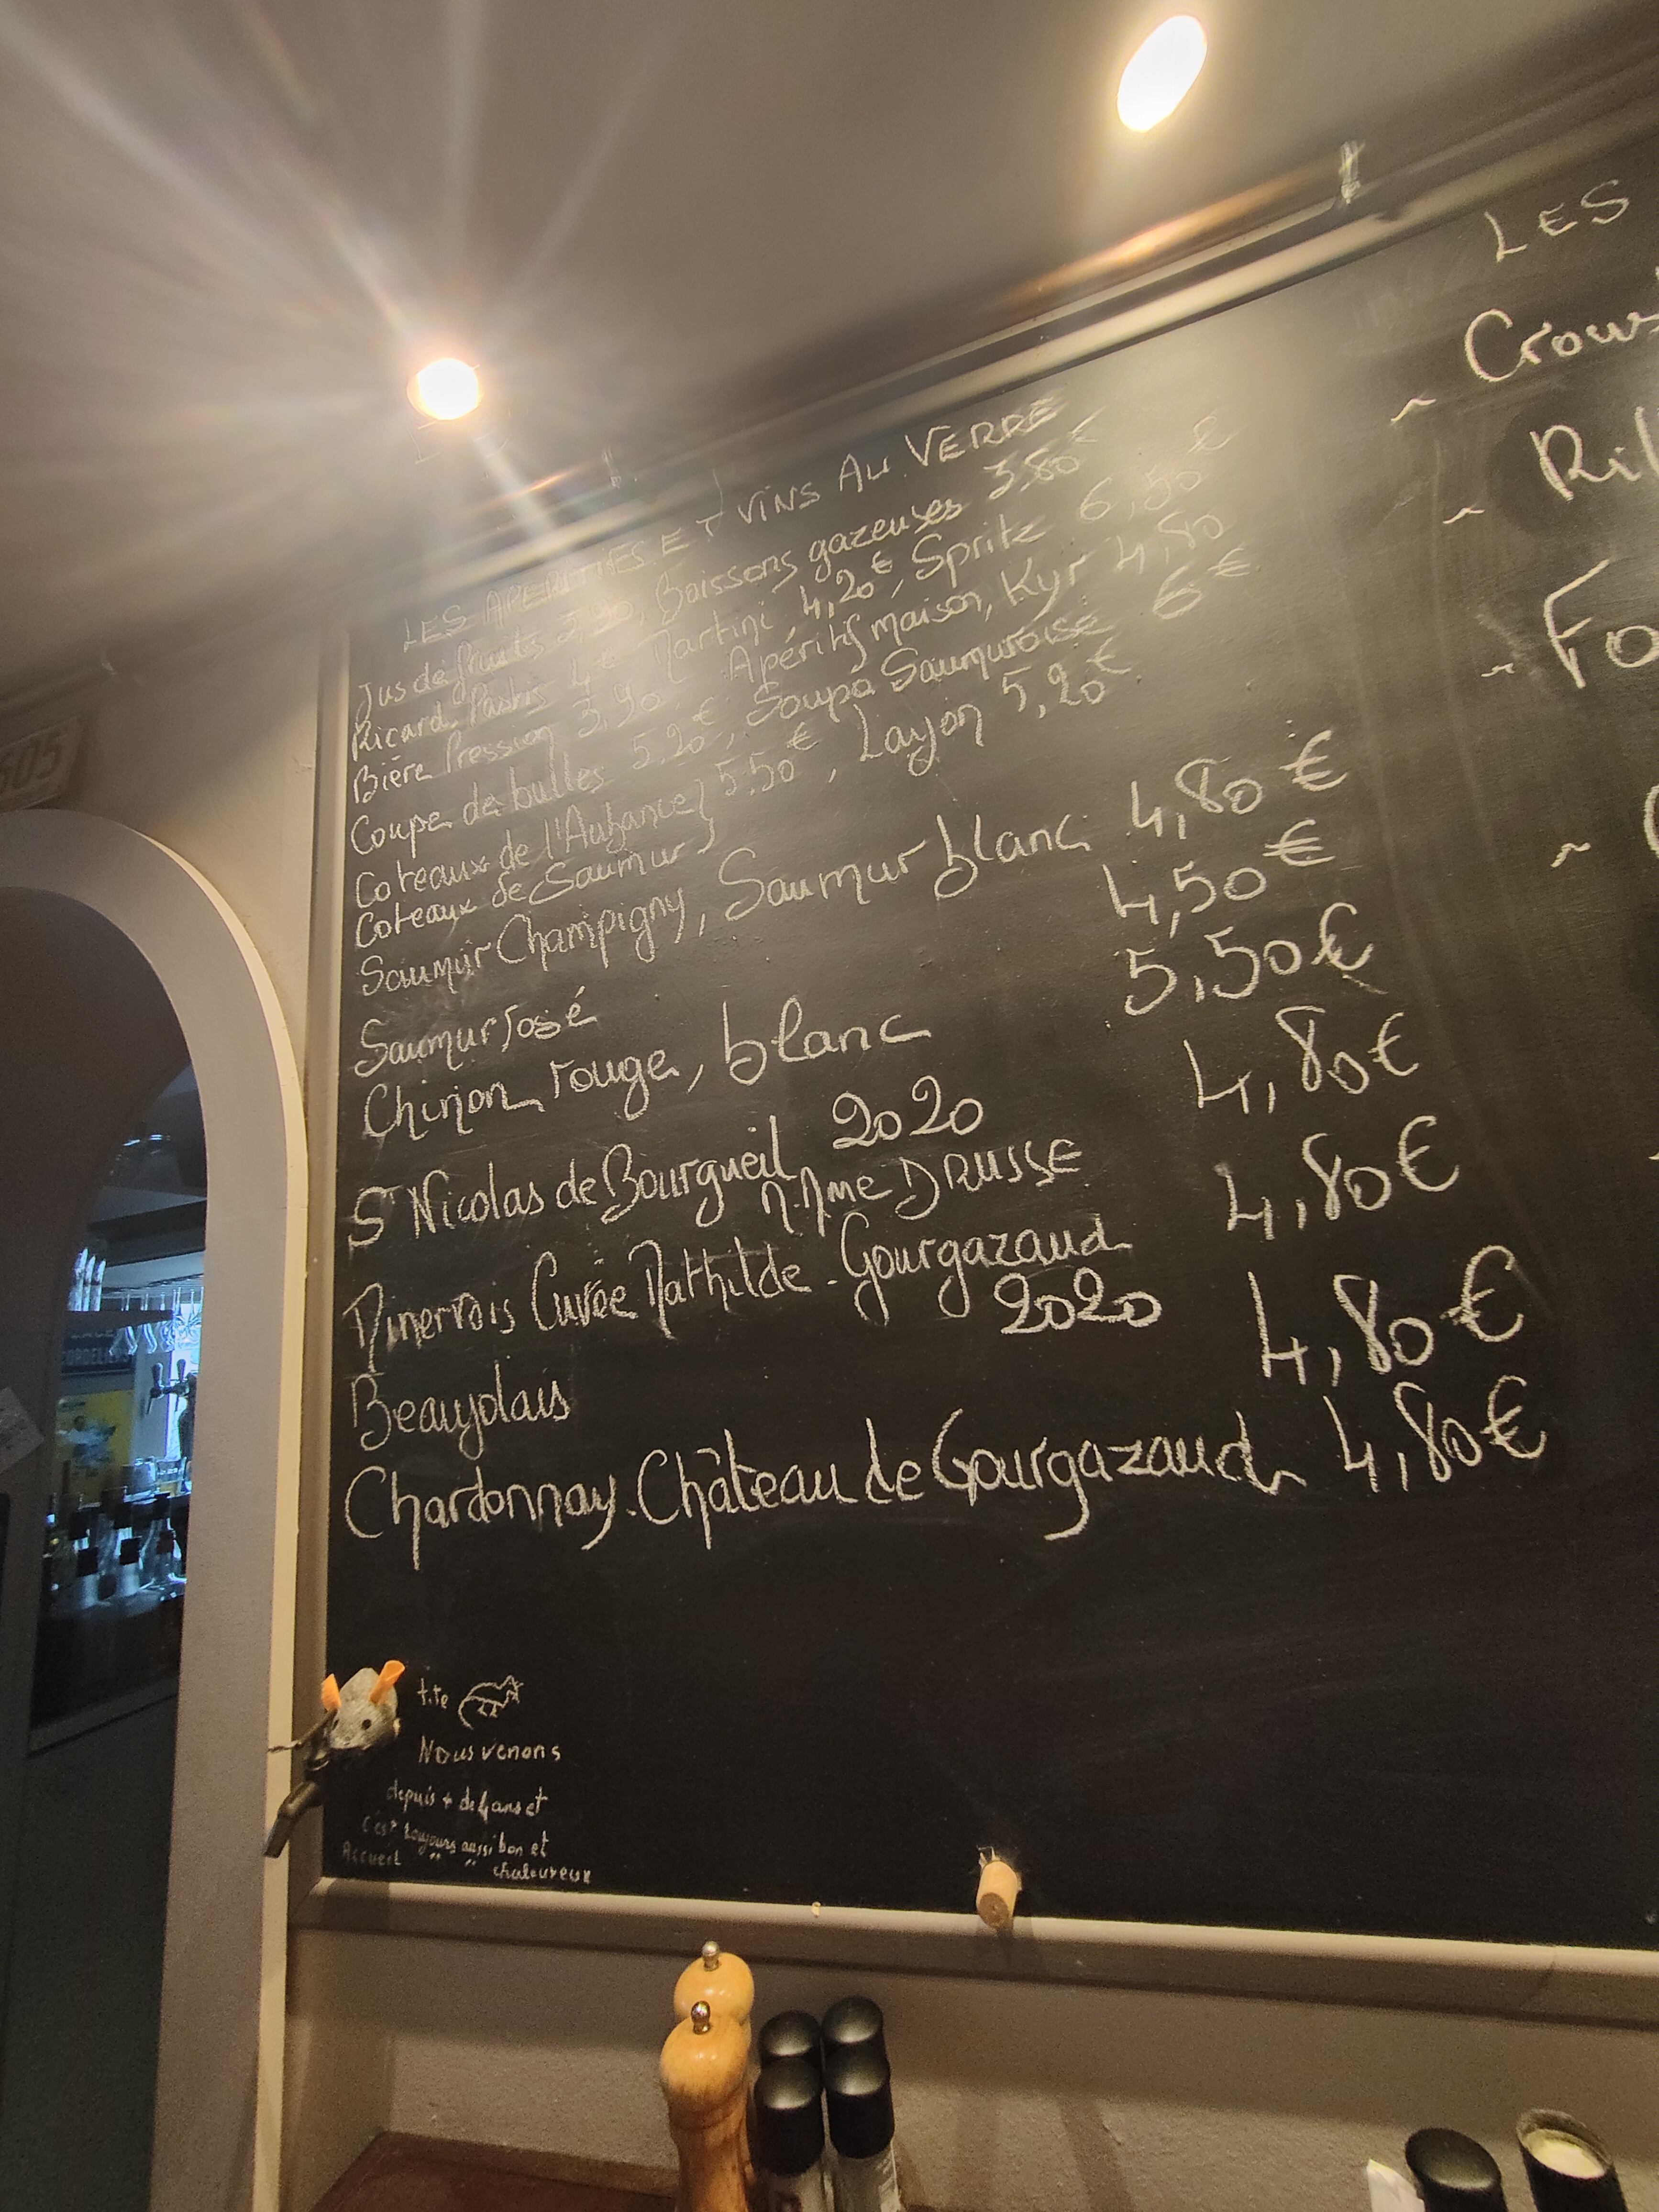 LES APERITIFS ET VINS AU VERRE
Jus de fruits 3,90, Boissons gazeuses 3.80 €
Ricard, Pastis 4 €, Martini 4,20 €, Spritz 6,50 €
Bière Pression 3,90, Apéritif maison, Kyr 4,80
Coupe de bulles 5,20 €, Soupe Saumuroise 6 €
Coteaux de l'Aubance } 5.50 €, Layon 5,20 €
Coteaux de Saumur
Saumur Champigny, Saumur blanc 4,80 €
Saumur rosé 4,50 €
Chinon rouge, blanc 5,50 €
St Nicolas de Bourgueil 2020 4,80 €
M.Mme DRUSSE
Minervois Cuvée Mathilde - Gourgazaud 4,80 €
2020
Beaujolais 4,80 €
Chardonnay. Château de Gourgazaud 4,80 €
LES
Ril
Fo
605
CORDELIERS
tite
Nous venons
depuis + de 4 ans et
c'est toujours aussi bon et
Accueil " " chaleureux